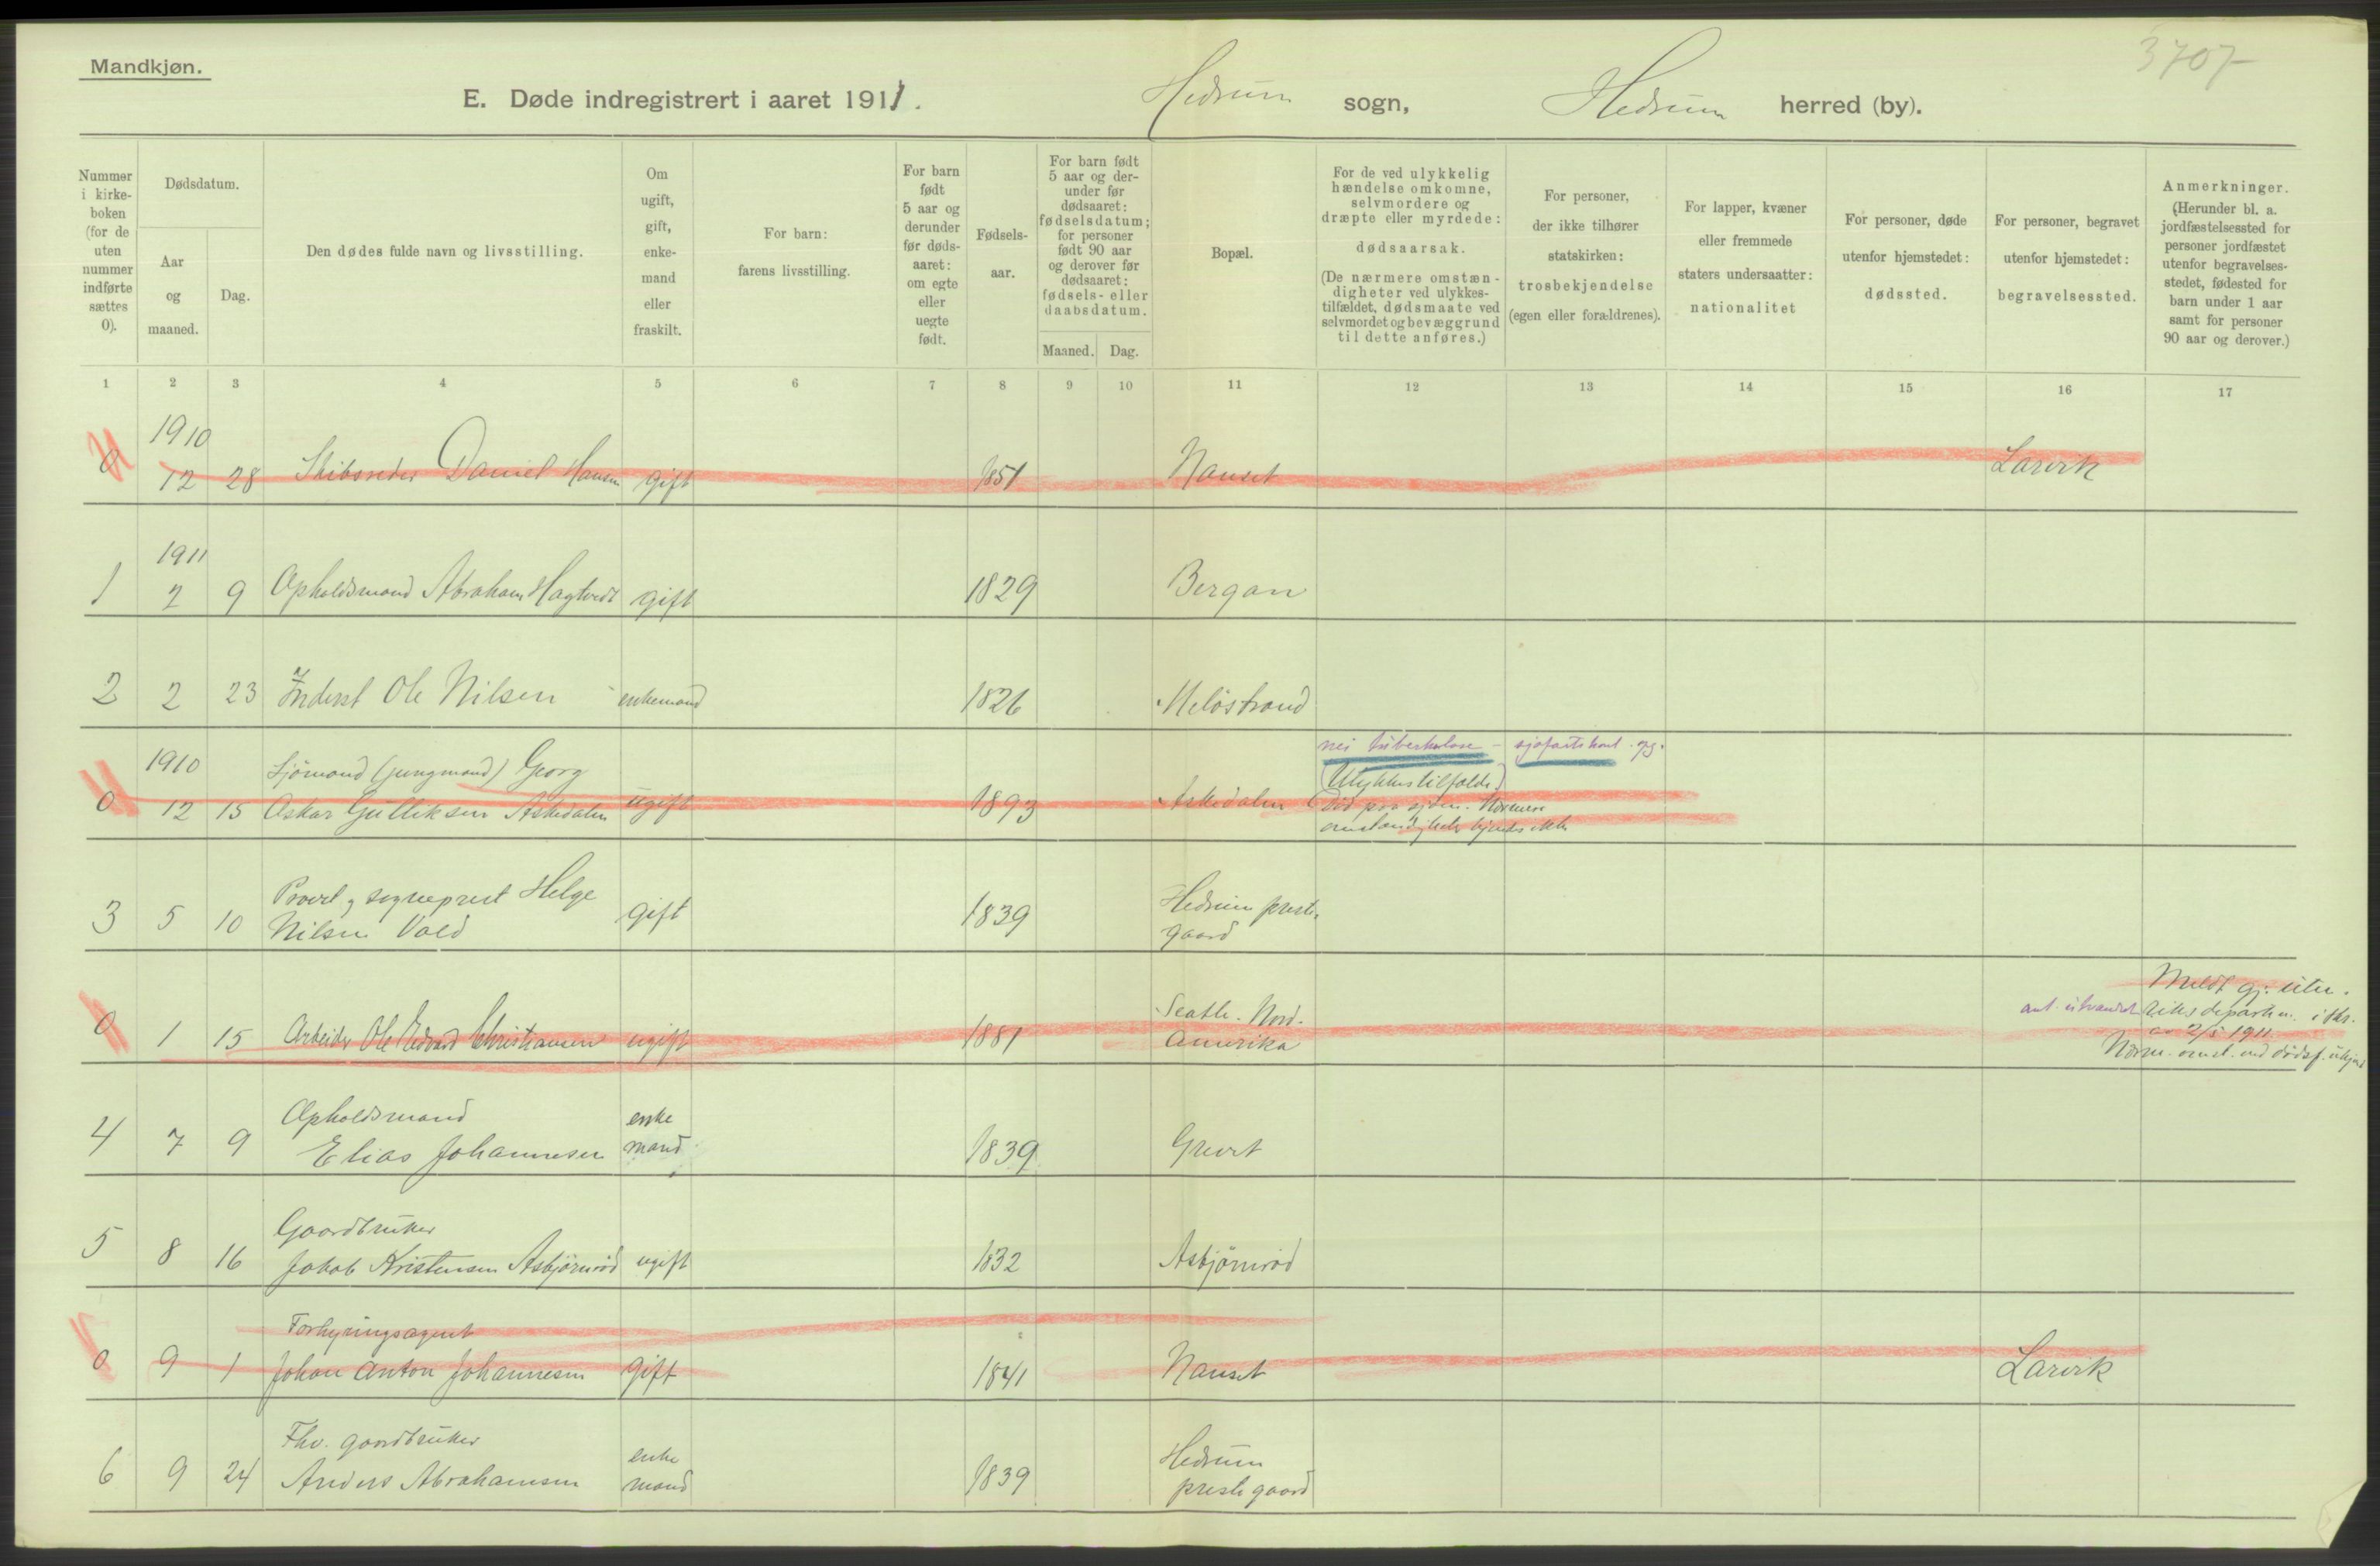 Mandkjøn.
3707
E. Døde indregistrert i aaret 1911. Hedrum sogn, Hedrum herred (by).
Nummer i kirke-boken (for de uten nummer indførte sættes 0).
Dødsdatum.
Aar og maaned.
Dag.
Den dødes fulde navn og livsstilling.
Om ugift, gift, enke-mand eller fraskilt.
For barn: farens livsstilling.
For barn født 5 aar og derunder før døds-aaret: om egte eller uegte født.
Fødsels-aar.
For barn født 5 aar og der-under før dødsaaret: fødselsdatum; for personer født 90 aar og derover før dødsaaret: fødsels- eller daabsdatum.
Maaned. Dag.
Bopæl.
For de ved ulykkelig hændelse omkomne, selvmordere og dræpte eller myrdede: dødsaarsak. (De nærmere omstæn-digheter ved ulykkes-tilfældet, dødsmaate ved selvmordet og bevæggrund til dette anføres.)
For personer, der ikke tilhører statskirken: trosbekjendelse (egen eller forældrenes).
For lapper, kvæner eller fremmede staters undersaatter: nationalitet
For personer, døde utenfor hjemstedet: dødssted.
For personer, begravet utenfor hjemstedet: begravelsessted.
Anmerkninger. (Herunder bl. a. jordfæstelsessted for personer jordfæstet utenfor begravelses-stedet, fødested for barn under 1 aar samt for personer 90 aar og derover.)
1 2 3 4 5 6 7 8 9 10 11 12 13 14 15 16 17
1910
0 12 28 Skibsreder Daniel Hansen gift 1851 Nanset Larvik
1911
1 2 9 Opholdsmand Abraham Hagtvedt gift 1829 Bergan
2 2 23 Inderst Ole Nilsen enkemand 1826 Meløstrand
nei tuberkulose - sjøfartskont. opg.
1910 Sjömand (jungmand) Georg (Ulykkestilfælde)
0 12 15 Oskar Gulliksen Askedalen ugift 1893 Askedalen Död paa sjøen. Nærmere
omstændigheter kjendes ikke
Provst og sogneprest Helge Hedrum preste-
3 5 10 Nilsen Vold gift 1839 gaard
Meldt gj. uten-
Seatle. Nord- ant. utvandret riksdepartem. i skr.
0 1 15 Arbeider Ole Edvard Christiansen ugift 1881 Amerika av 2/5 1911.
Nærm. omst. ved dødsf. ukjend
Opholdsmand enke
4 7 9 Elias Johannesen mand 1839 Grevet
Gaardbruker
5 8 16 Jakob Kristensen Asbjörnröd ugift 1832 Asbjörnröd
Forhyringsagent
0 9 1 Johan Anton Johannesen gift 1841 Nanset Larvik
Fhv. gaardbruker enke Hedrum
6 9 24 Anders Abrahamsen mand 1839 prestegaard